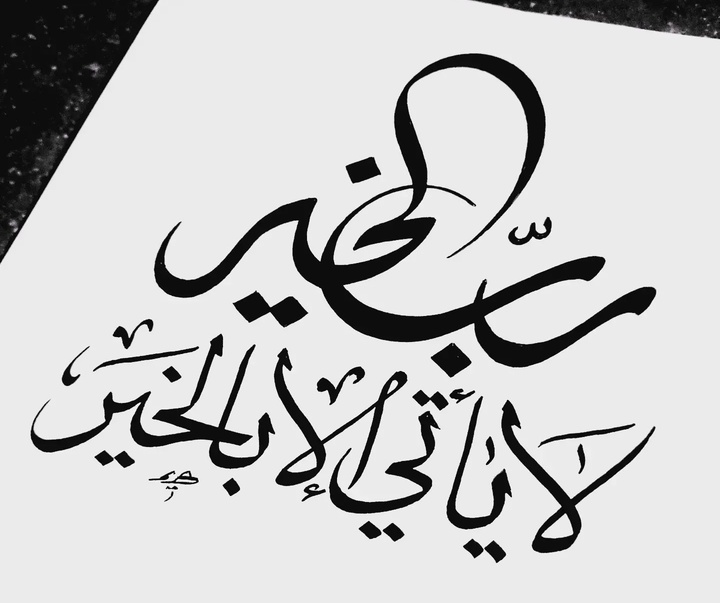 ربّ الخير
لا يأتي إلا بالخير